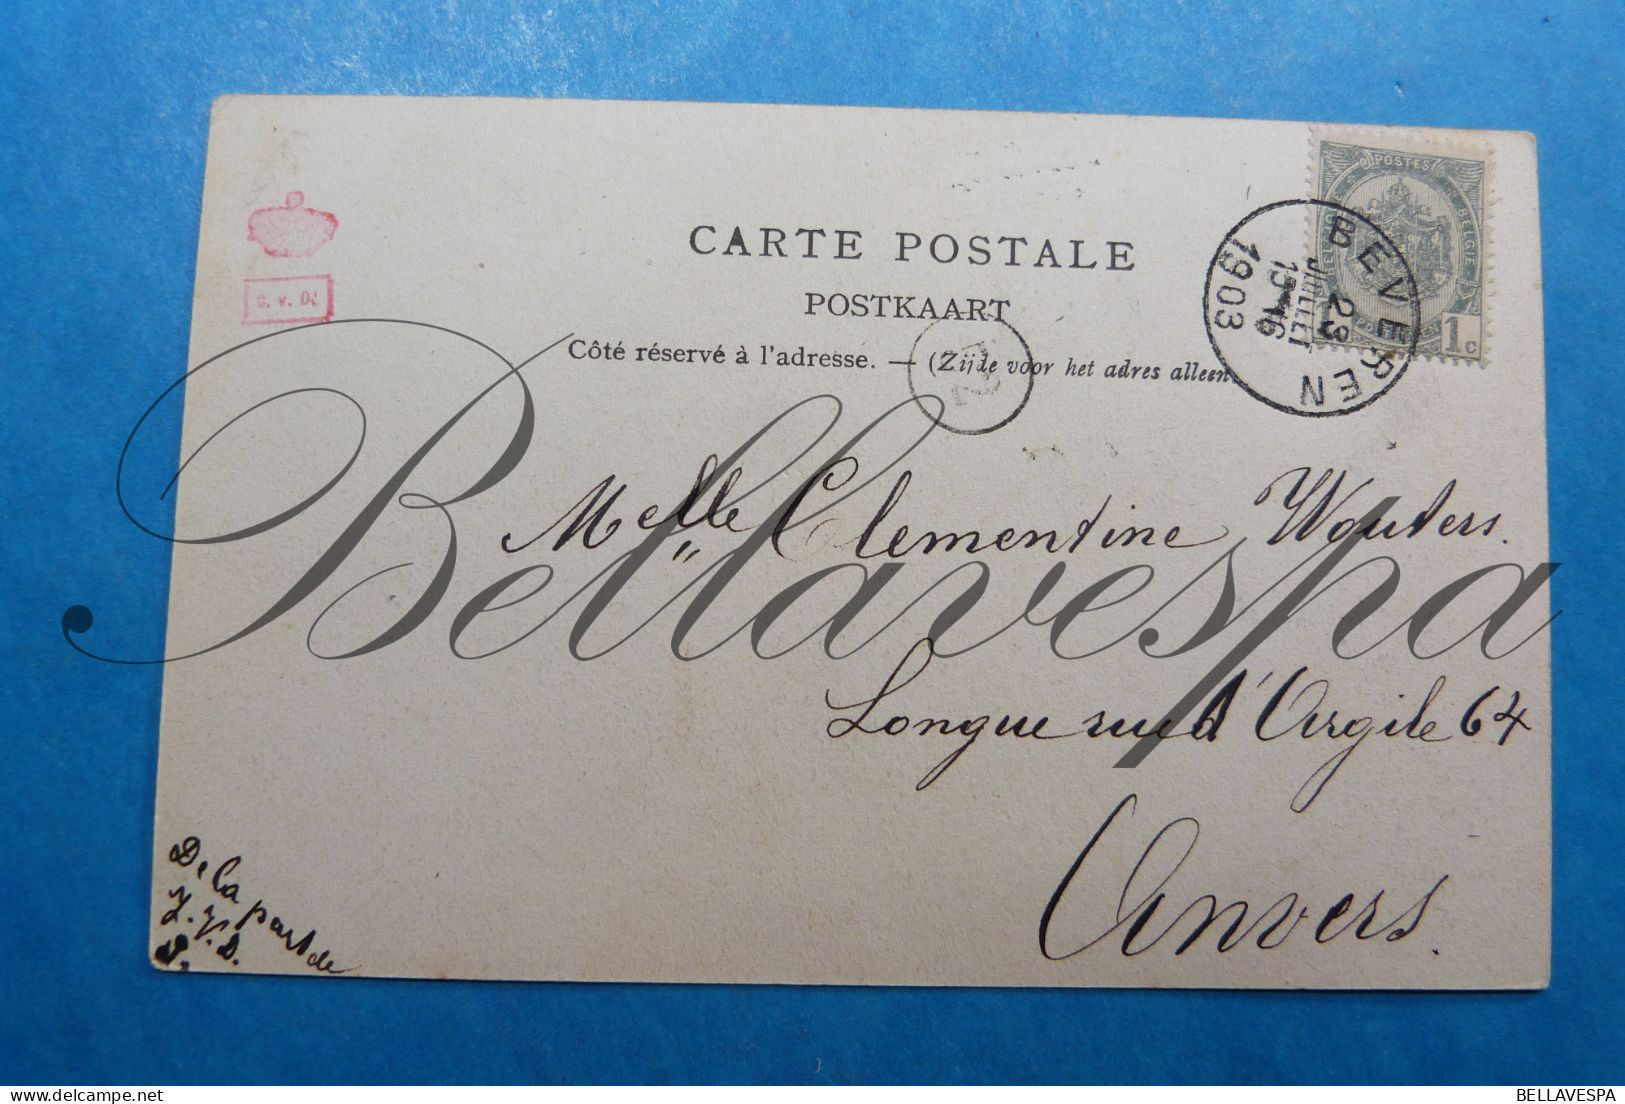 CARTE POSTALE
POSTKAART
Côté réservé à l'adresse. — (Zijde voor het adres alleen
POSTES
1c
BEVEREN
23
JUILLET
15-16
1903
Melle Clementine Wouters.
Longue rue d'Argile 64
Anvers.
De la part de
Bellavespa
BELLAVESPA